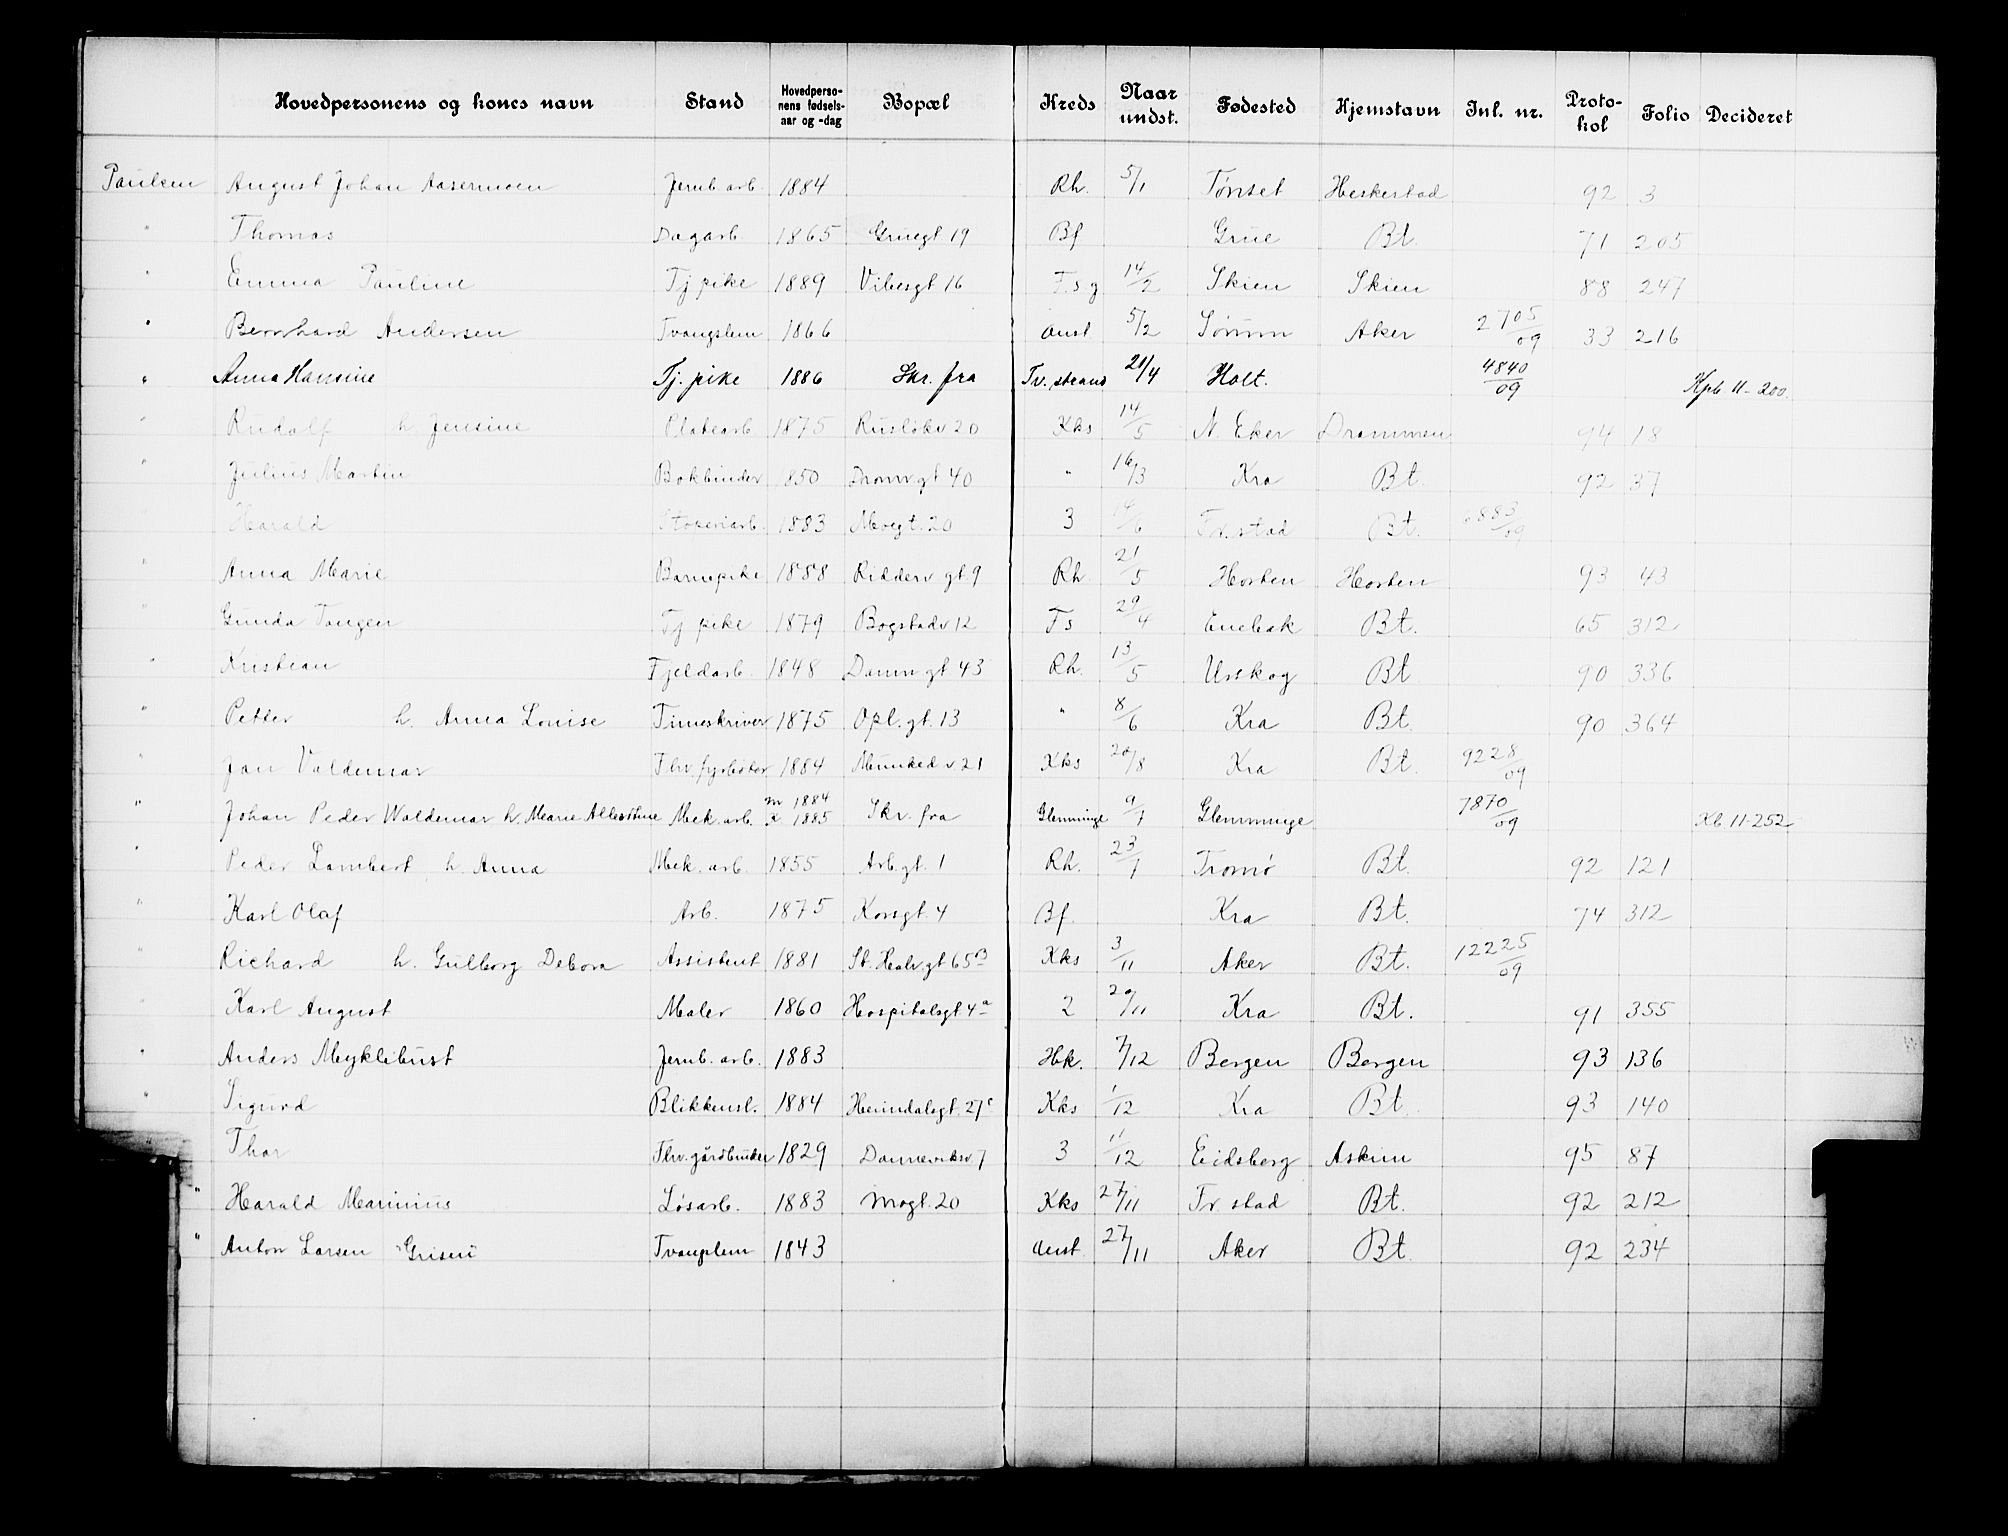 Hovedpersonens og kones navn Stand Hovedperso-nens fødsels-aar og -dag Bopæl Kreds Naar undst. Fødested Hjemstavn Inl. nr. Proto-kol Folio Decideret
Paulsen August Johan Aasermoen Jernb. arb. 1884 Rh. 5/1 Tønset Heskestad 92 3
" Thomas Dagarb. 1865 Gruegt 19 Bf Grue Bt. 71 205
" Emma Pauline Tj pike 1889 Vibesgt 16 F.s g 14/2 Skien Skien 88 247
" Bernhard Andersen Tvangslem 1866 Anst 5/2 Sørum Aker 2705/09 33 216
" Anna Hansine Tj. pike 1886 Skr. fra Tv.strand 21/4 Holt. 4840/09 Kpb 11-200.
" Rudolf h. Jensine Platearb. 1875 Rusløkv 20 Kks 14/5 N. Eker Drammen 94 18
" Julius Martin Bokbinder 1850 Dramv gt 40 " 16/3 Kra Bt. 92 37
" Harald Støperiarb. 1883 Mogt. 20 3 14/6 Fr.stad Bt. 6883/09
" Anna Marie Barnepike 1888 Ridderv gt 9 Rh 21/5 Horten Horten 93 43
" Gunda Tangen Tj pike 1879 Bogstadv 12 Fs 29/4 Enebak Bt. 65 312
" Kristian Fjeldarb. 1848 Damv gt 43 Rh. 13/5 Urskog Bt 90 336
" Petter h. Anna Louise Timeskriver 1875 Opl. gt. 13 " 8/6 Kra Bt. 90 364
" Jan Valdemar Fhv. fyrbøter 1884 Munked v 21 Kks 20/8 Kra Bt. 9228/09
" Johan Peder Waldemar h. Marie Albertine Mek. arb. m 1884 k 1885 Skr. fra Glemminge 9/7 Glemminge 7870/09 Kb 11-252
" Peder Lambert h. Anna Mek. arb. 1855 Arb. gt. 1 Rh. 23/7 Tromø Bt. 92 121
" Karl Olaf Arb. 1875 Korsgt. 4 Bf. Kra Bt. 74 312
" Richard h. Gulborg Debora Assistent 1881 St. Halv. gt 65 B Kks 3/11 Aker Bt. 12225/09
" Karl August Maler 1860 Hospitalsgt. 4 a 2 20/11 Kra Bt. 91 355
" Anders Myklebust Jernb. arb. 1883 Hk. 7/12 Bergen Bergen 93 136
" Sigurd Blikkensl. 1884 Heimdalsgt. 27 c Kks 1/12 Kra Bt 93 140
" Thor Fhv. gårdbruker 1829 Danneviksv. 7 3 11/12 Eidsberg Askim 95 87
" Harald Marinius Løsarb. 1883 Mogt. 20 Kks 27/11 Fr. stad Bt. 92 212
" Anton Larsen Griseri Tvangslem 1843 Anst. 27/11 Aker Bt. 92 234